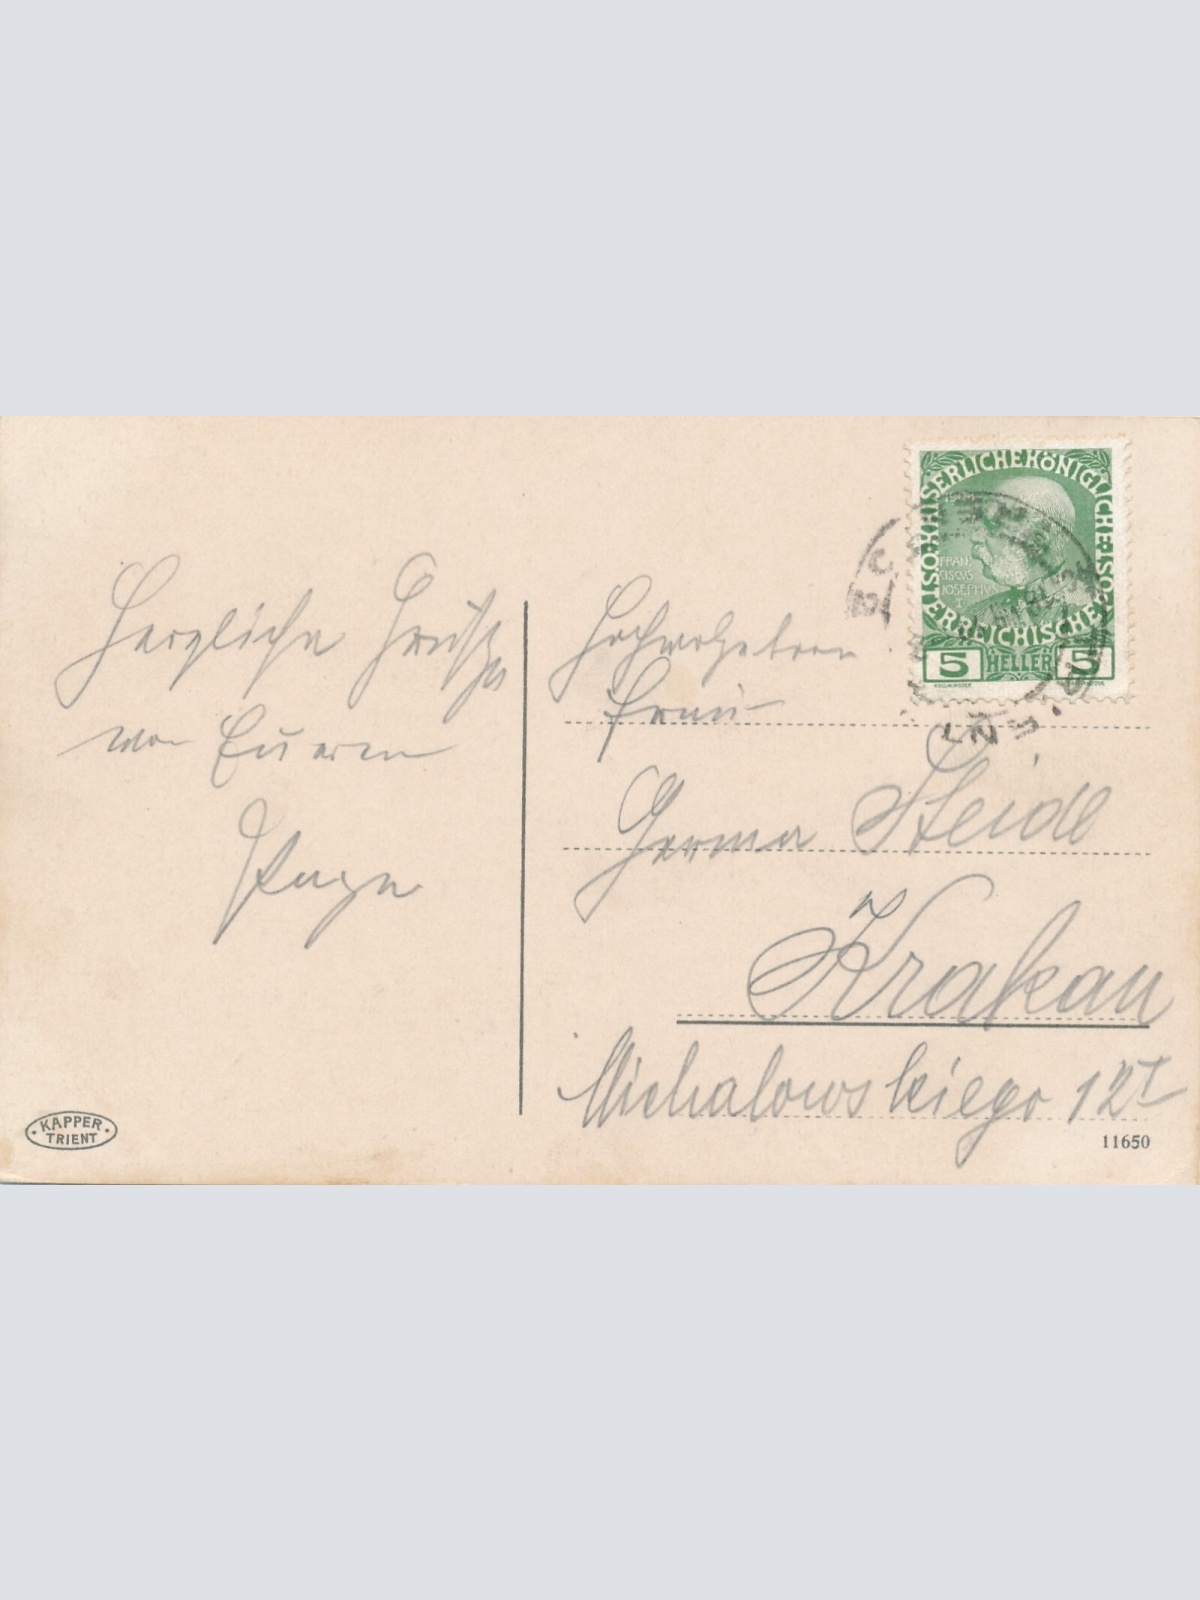 Herzliche Grüße
von Euerm
Hochwohgeboren
Frau
Germa Steidl
Krakau
Michalowskiego 12 I
KAISERLICHE KÖNIGLICHE ÖSTERREICHISCHE
FRAN
CISCVS
JOSEPHVS
I
5 HELLER 5
KAPPER
TRIENT
11650